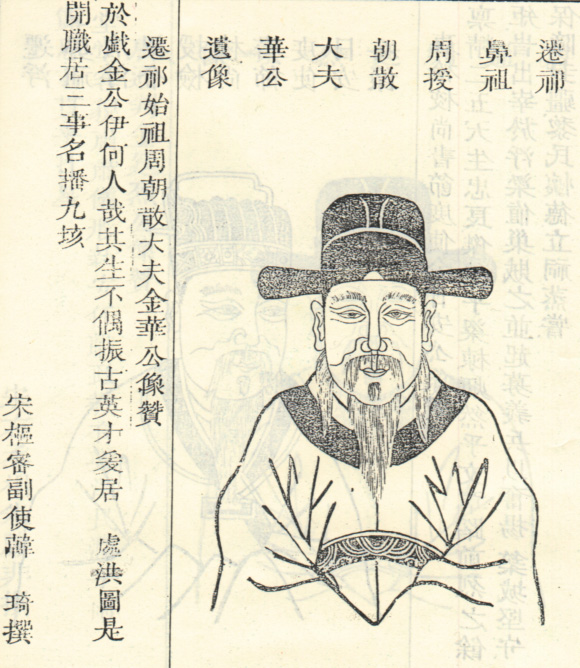 遷祁
鼻祖
周授
朝散
大夫
華公
遺像
遷祁始祖周朝散大夫金華公像贊
於戲金公伊何人哉其生不偶振古英才爰居 處洪圖是
開職居三事名播九垓
宋樞審副使韓 琦撰